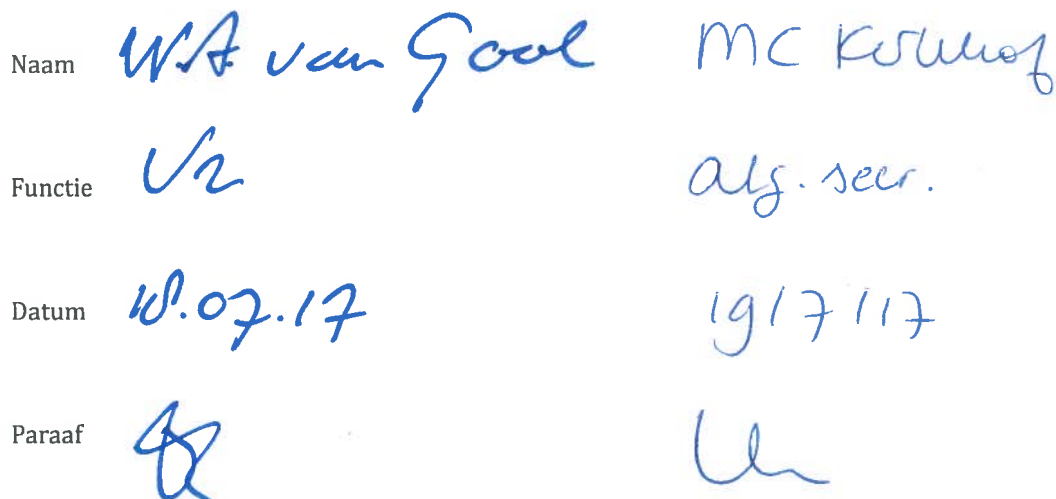 Naam W.A van Gool MC Kerkhof
Functie Vz alg. secr.
Datum 18.07.17 19/7/17
Paraaf